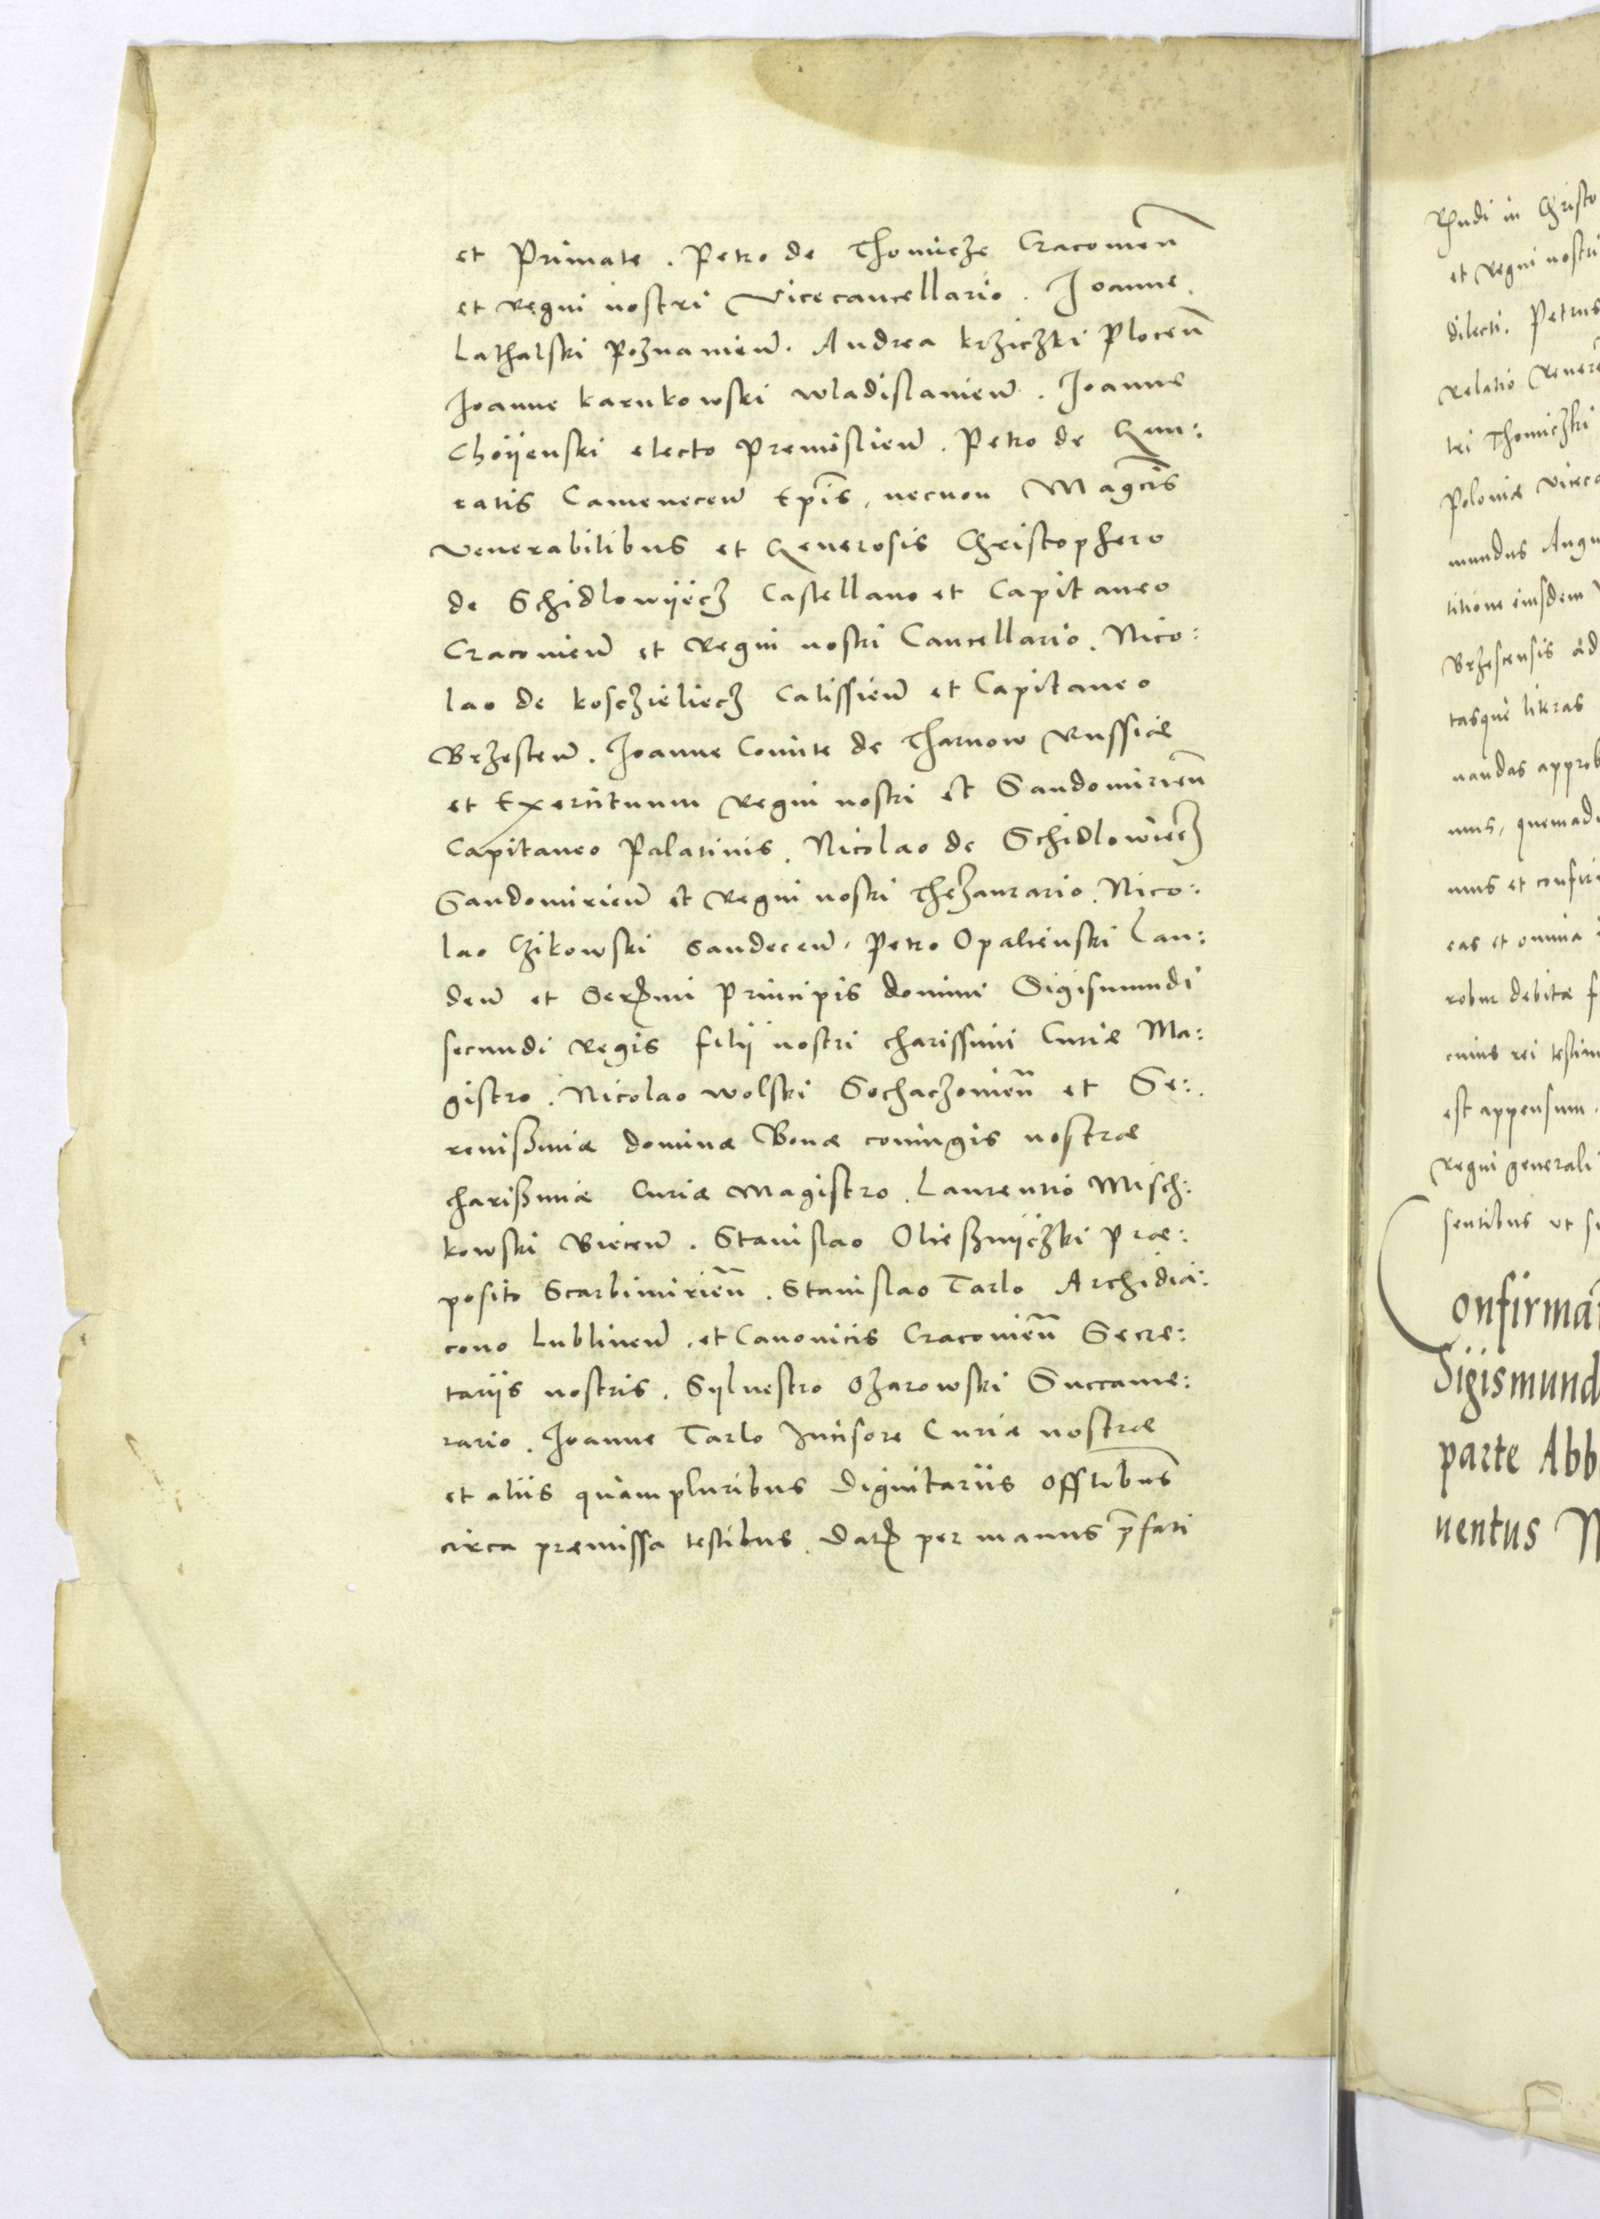 et Primate. Petro de Thomicze Cracouieñ
et Regni nostri Vicecancellario. Joanne
Lathalski Poznanieñ. Andrea krziczki Ploceñ
Joanne karnkowski wladislauieñ. Joanne
Choijenski electo Premislieñ. Petro de Gam:
ratis Cameneceñ Ep̃is, necnon Mag̃cis
venerabilibus et Generosis Christophero
de Schidlowijecz Castellano et Capitaneo
Cracouieñ et Regni nostri Cancellario. Nico:
lao de koszczieliecz Calissieñ et Capitaneo
Brzesteñ. Joanne Comite de Tharnow Russiæ
et Exercituum Regni nostri et Sandomirieñ
Capitaneo Palatinis. Nicolao de Schidlowiecz
Sandomirieñ et Regni nostri Thezaurario. Nico:
lao Czikowski Sandeceñ. Petro Opalienski Lan:
deñ et Serm̃i Principis domini Sigismundi
secundi Regis filij nostri charissimi Curiæ Ma:
gistro. Nicolao wolski Sochaczouieñ et Se:
renißimæ dominæ Bonæ coniugis nostræ
charißimæ Curiæ Magistro. Laurentio Misch:
kowski Bieceñ. Stanislao Oließnijczki Præ:
posito Scarbimirieñ. Stanislao Tarlo Archidia:
cono Lublineñ. et Canonicis Cracouieñ Secre:
tarijs nostris. Sijluestro Ozarowski Succame:
rario. Joanne Tarlo Incisore Curiæ nostræ
et alijs quampluribus dignitarijs Offtibus
circa præmissa testibus. Dat̃ per manus p̃fati
Rñdi in Christo
et Regni nostri
dilecti. Petrus
Relatio Reuere
tri Thomiczki
Poloniæ vicec
mundus Augu
titione eiusdem
Brzestensis ad
tasque literas
uandas approb
mus, quemad
mus et confir
eas et omnia
robur debitæ f
cuius rei testim
est appensum.
Regni generali
sentibus ut s
Confirma
Sigismund
parte Abb
uentus